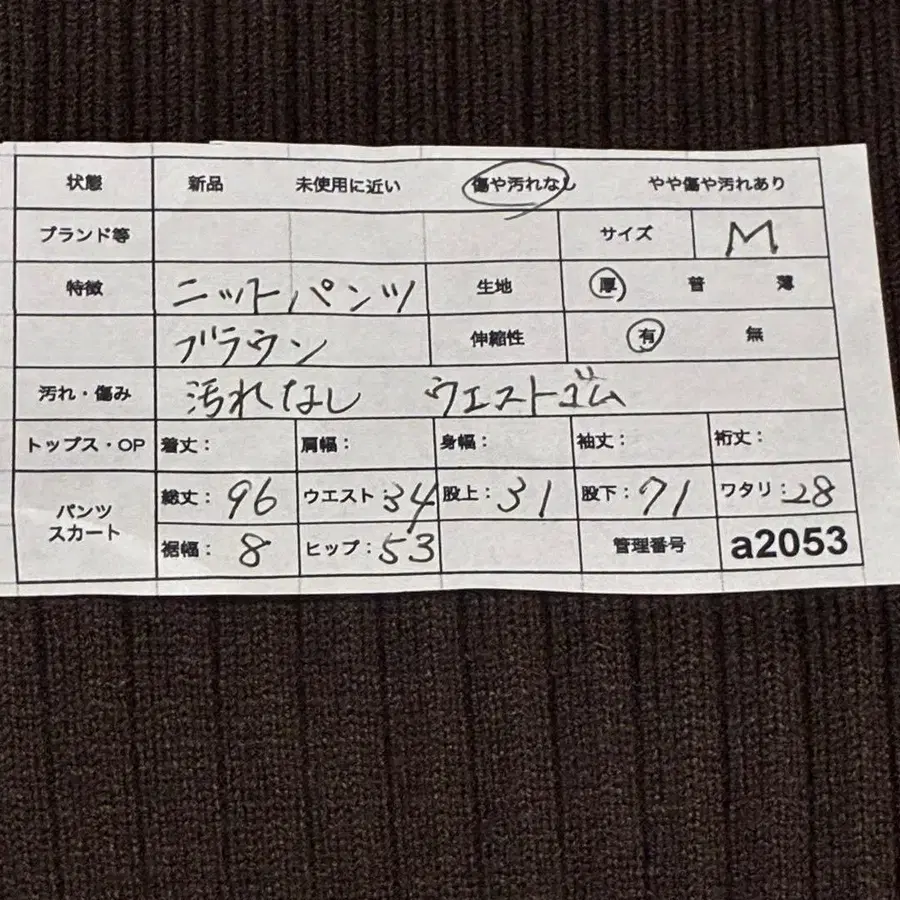 状態 新品 未使用に近い 傷や汚れなし やや傷や汚れあり
ブランド等 サイズ M
特徴 ニットパンツ 生地 厚 普 薄
ブラウン 伸縮性 有 無
汚れ・傷み 汚れなし ウエストゴム
トップス・OP 着丈: 肩幅: 身幅: 袖丈: 裄丈:
パンツ スカート 総丈: 96 ウエスト: 34 股上: 31 股下: 71 ワタリ: 28
裾幅: 8 ヒップ: 53 管理番号 a2053